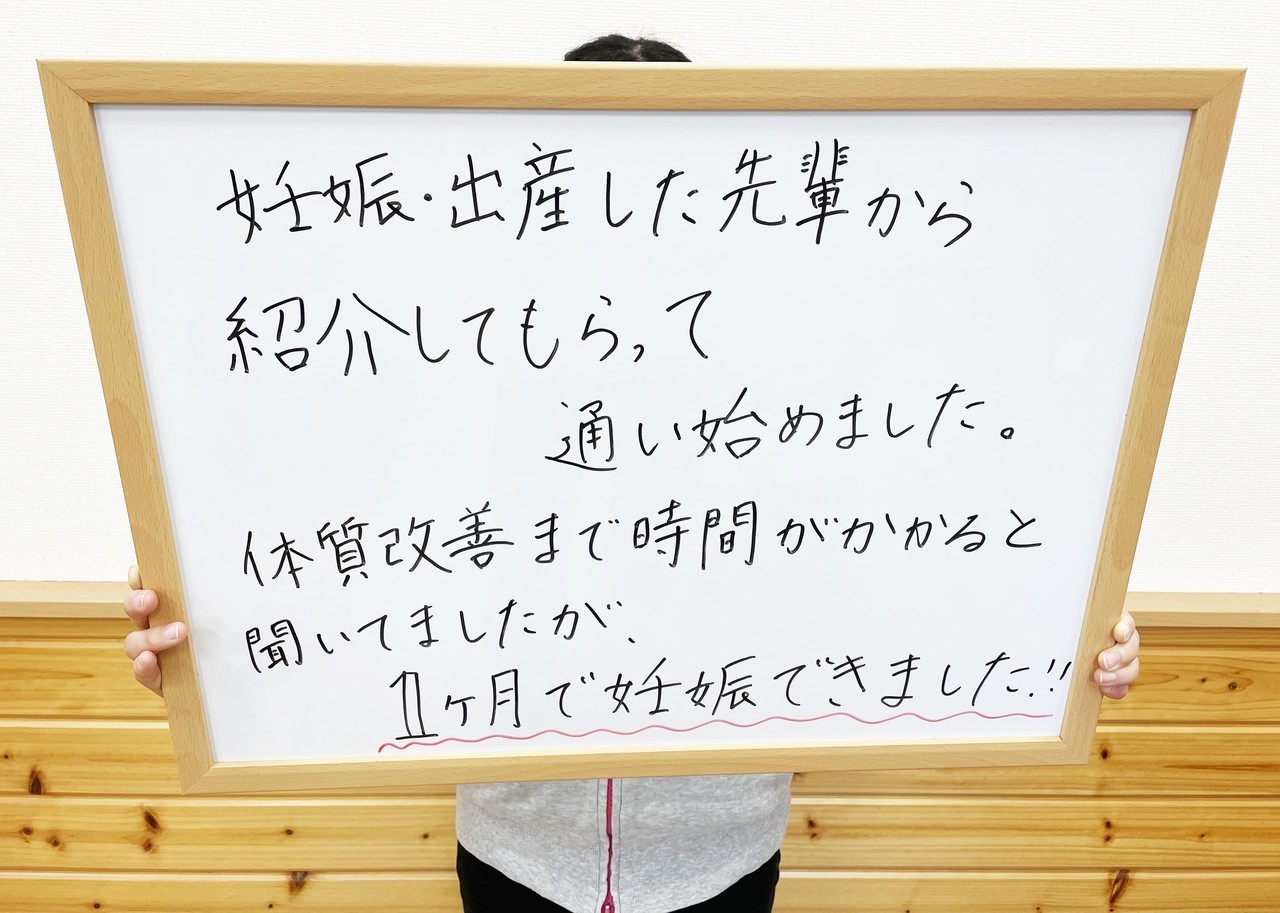 妊娠・出産した先輩から
紹介してもらって
通い始めました。
体質改善まで時間がかかると
聞いてましたが、
1ヶ月で妊娠できました!!